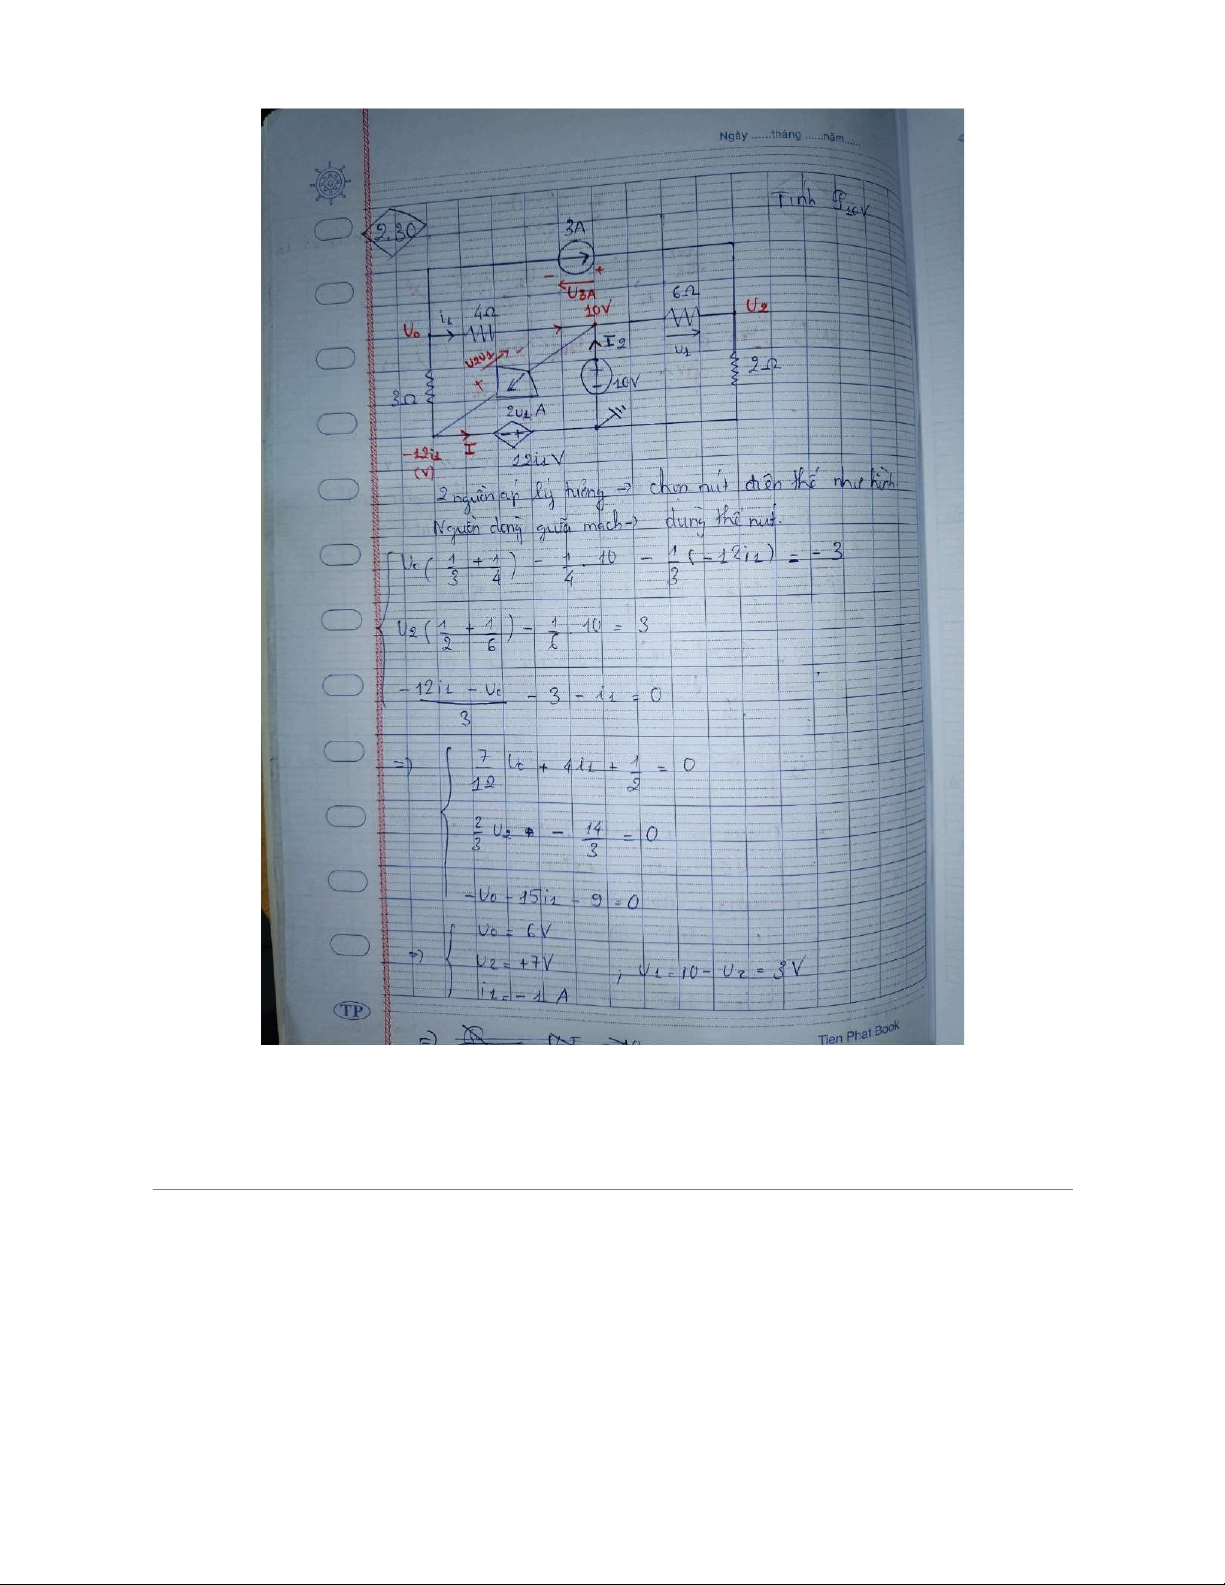 Ngày ......tháng ......năm......
Tính P10V
2.30
3A
- +
U3A
i1 4Ω 10V 6Ω U2
U0
I2 u1
+ -
3Ω 10V 2Ω
2u1 A
-12i1 (V) I - +
12i1 V
2 nguồn áp lý tưởng → chọn nút điện thế như hình
Nguồn dòng giữa mạch → dùng thế nút.
U0 ( 1/3 + 1/4 ) - 1/4 . 10 - 1/3 (-12i1) = -3
U2 ( 1/2 + 1/6 ) - 1/6 . 10 = 3
(-12i1 - U0)/3 - 3 - i1 = 0
=> 7/12 U0 + 4i1 + 1/2 = 0
2/3 U2 - 14/3 = 0
-U0 - 15i1 - 9 = 0
=> U0 = 6V
U2 = +7V ; U1 = 10 - U2 = 3V
i1 = -1 A
TP
=>
Tien Phat Book